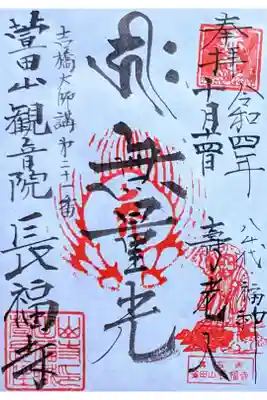 奉拝
令和四年
十月十四日
八千代福神
寿老人
無量光
吉橋大師講第二十一番
萱田山観音院
長福寺
萱田山長福寺